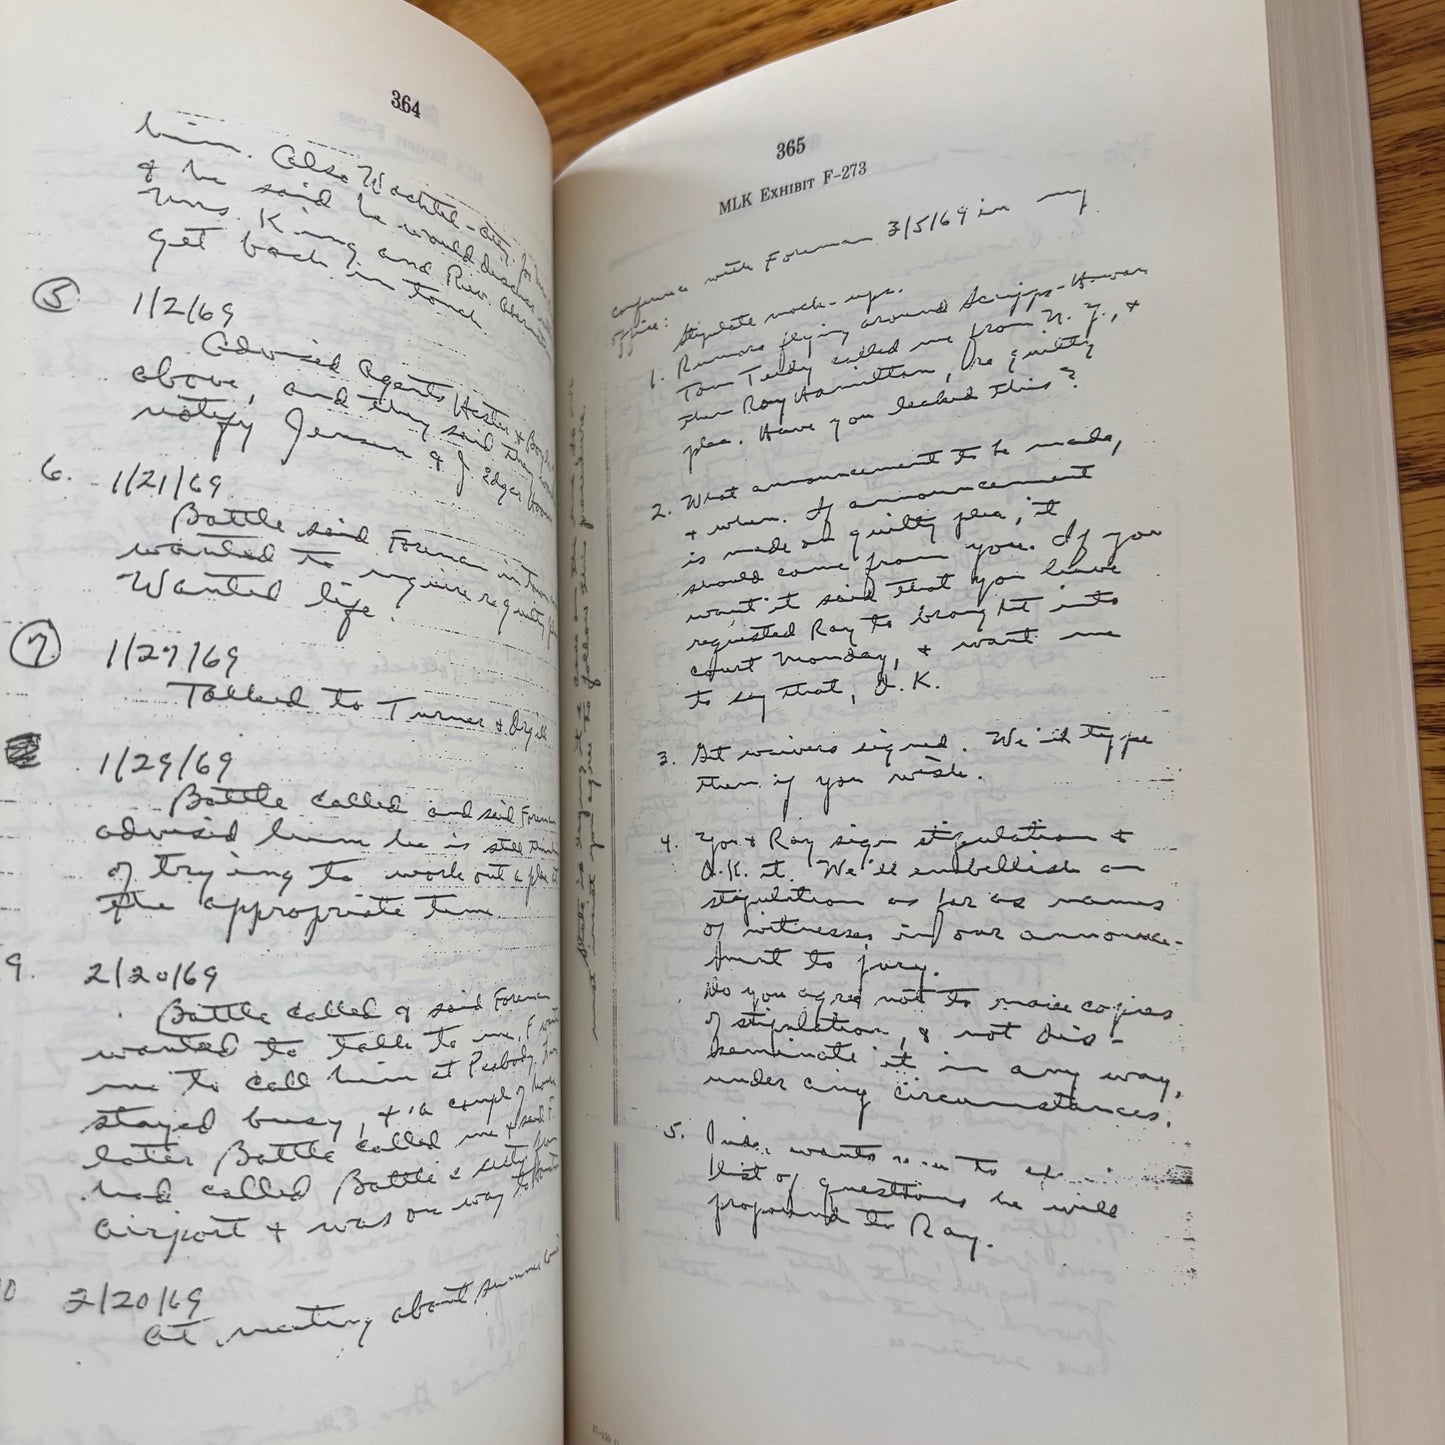 364
him. Also Wachtel - atty. for
& he said he would discuss with
Mrs. King and Rev. Abernathy
get back in touch.
5 1/2/69
Advised Agents Hester &
above, and they said they would
notify Jensen & J. Edgar Hoover
6. 1/21/69
Battle said Foreman in town
wanted to inquire re guilty
Wanted life.
7. 1/27/69
Talked to Turner &
1/29/69
Battle called and said Foreman
advised him he is still
of trying to work out a plea at
the appropriate time
9. 2/20/69
Battle called & said Foreman
wanted to talk to me, F
me to call him at Peabody,
stayed busy, & a couple of hours
later Battle called me & said F.
had called Battle &
airport & was on way to Houston
10 2/20/69
At meeting about
365
MLK EXHIBIT F-273
Conference with Foreman 3/5/69 in my
office:
Stipulate mock-ups.
1. Rumors flying around Scripps-Howard
Tom Teddy called me from N.Y., &
then Ray Hamilton, re guilty
plea. Have you leaked this?
2. What announcement to be made,
& when. If announcement
is made of guilty plea, it
should come from you. If you
want it said that you have
requested Ray to brought into
court Monday, & want me
to say that, O.K.
3. Get waivers signed. We'll type
them if you wish.
4. You & Ray sign stipulation &
O.K. it. We'll embellish on
stipulation as far as names
of witnesses in our announce-
ment to jury.
Do you agree not to make copies
of stipulation, & not dis-
seminate it in any way,
under any circumstances.
5. Judge wants to
list of questions he will
propound to Ray.
State is trying it &
must insist you agree to follow this procedure.